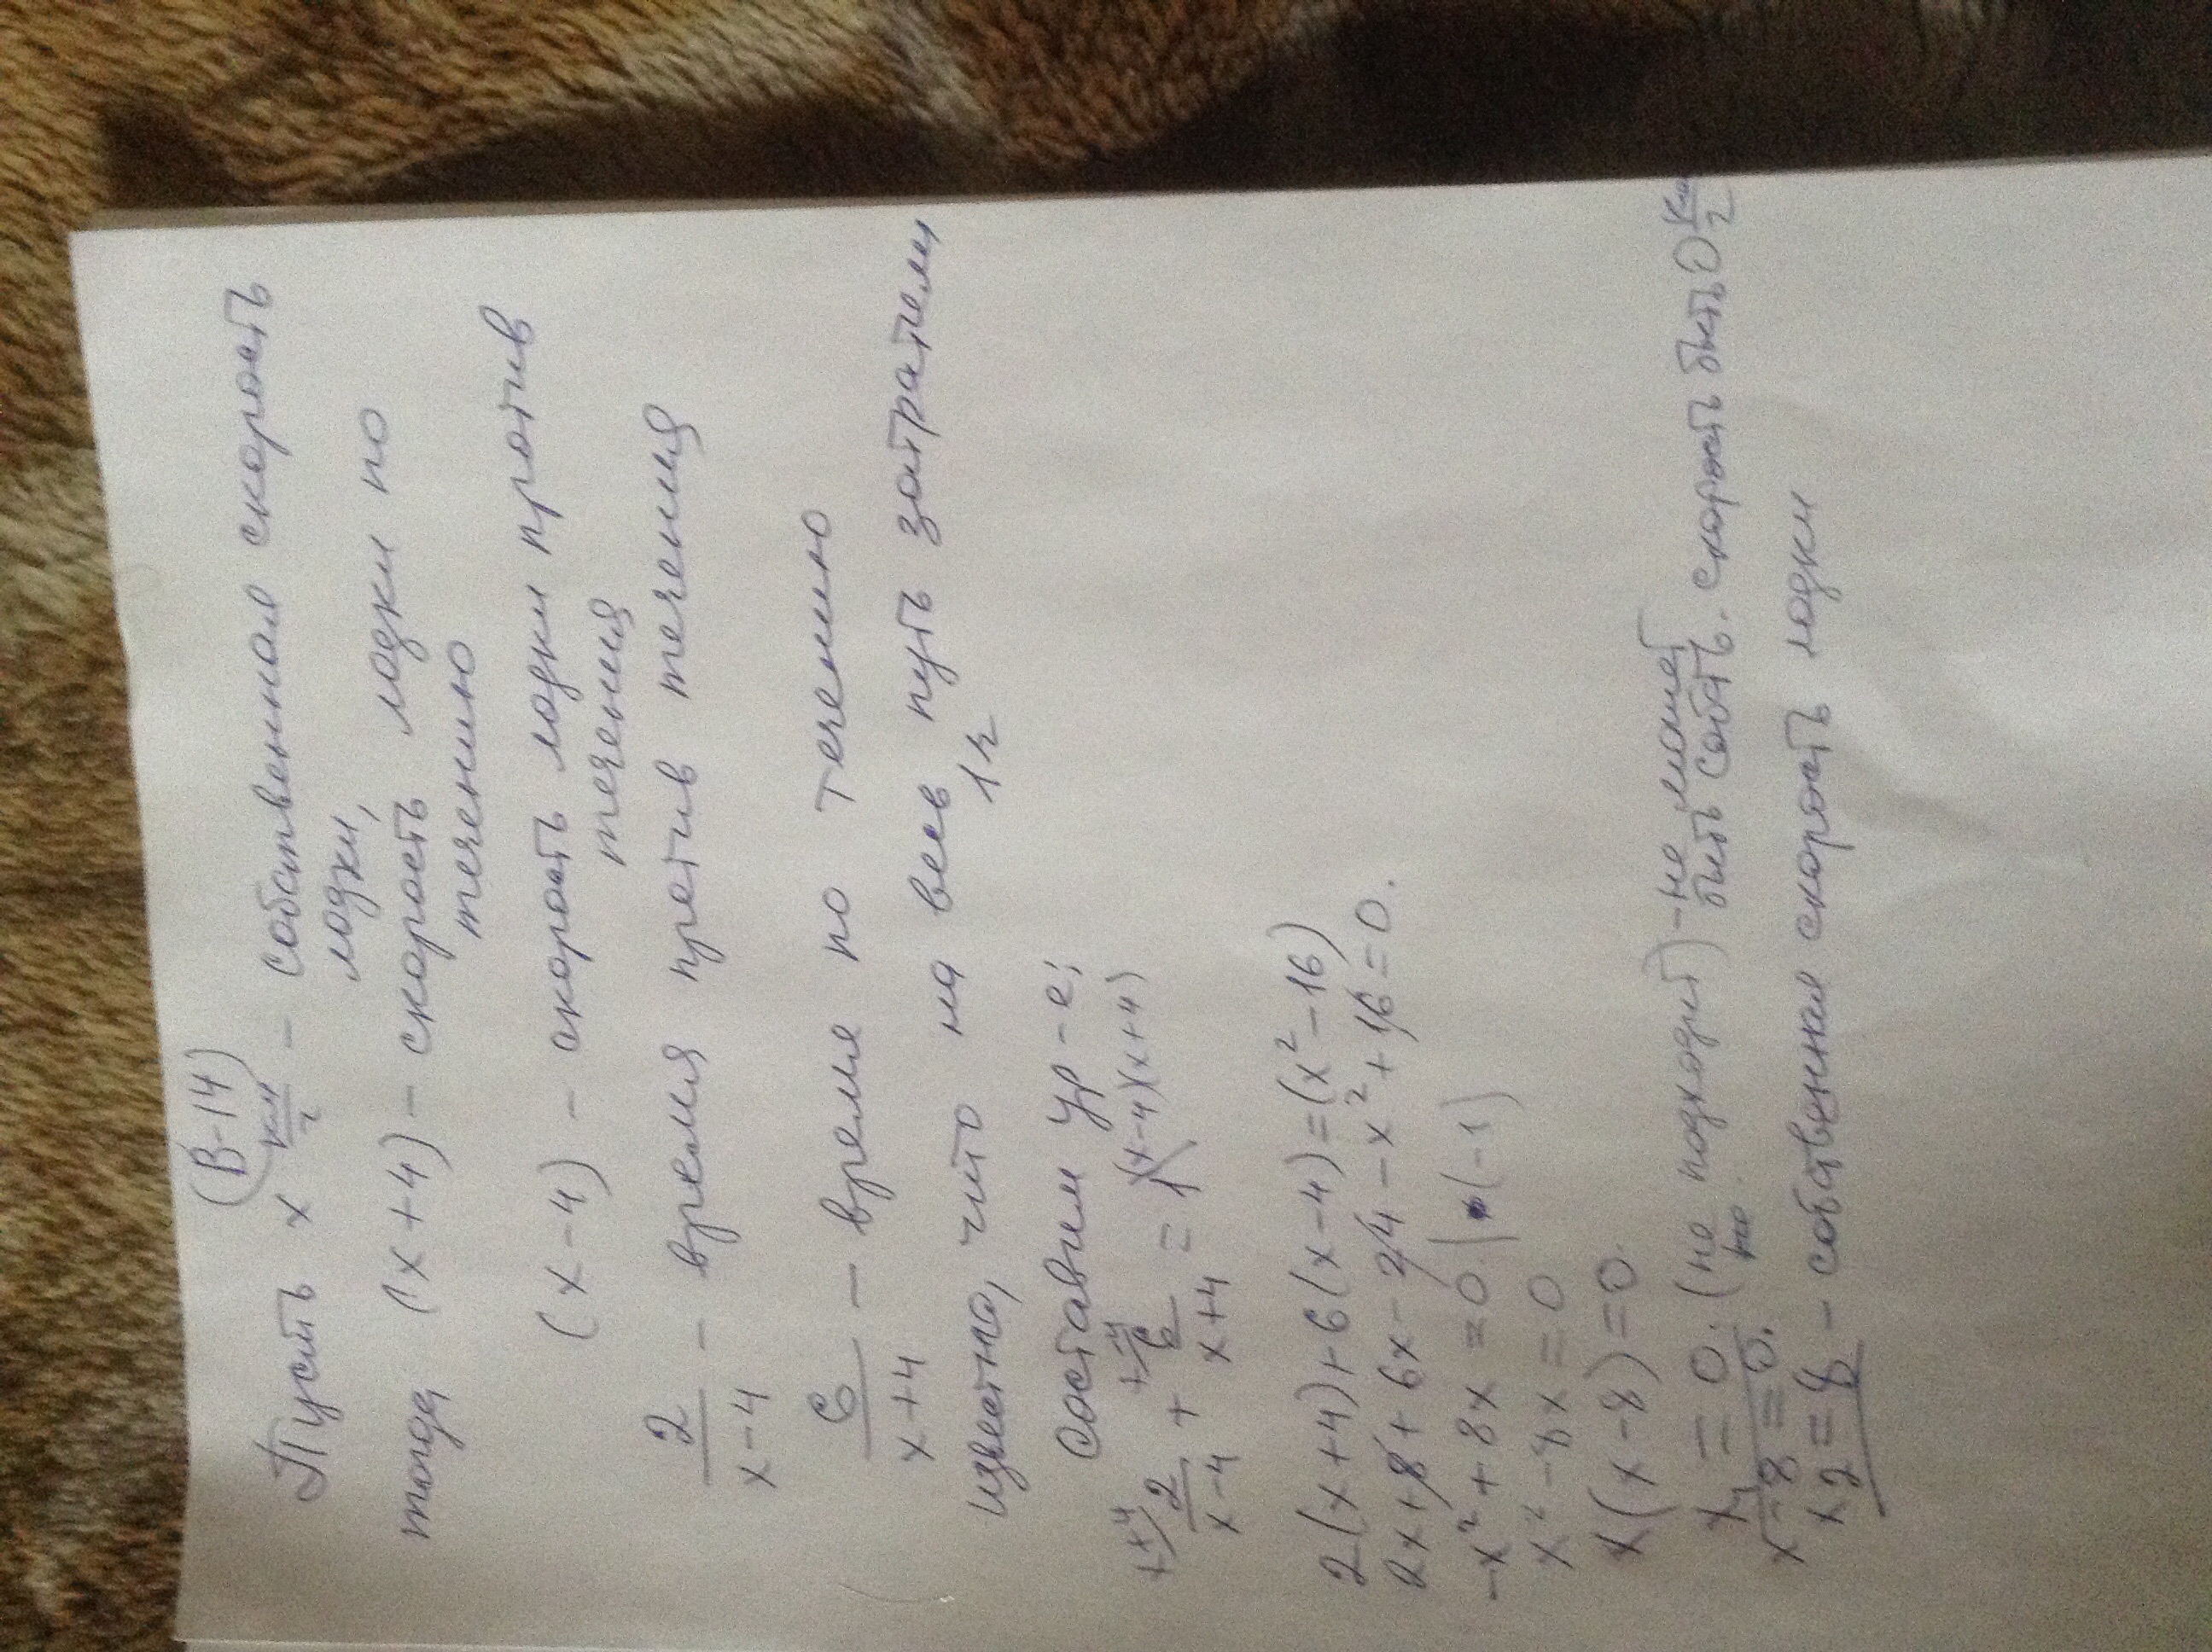 (В-14)
Пусть x км/г - собственная скорость
лодки,
тогда (x+4) - скорость лодки по
течению
(x-4) - скорость лодки против
течения
2/(x-4) - время против течения
6/(x+4) - время по течению
известно, что на весь путь затратили
1 г
Составим ур-е:
2/(x-4) + 6/(x+4) = 1 (x-4)(x+4)
2(x+4)+6(x-4)=(x²-16)
2x+8+6x-24-x²+16=0.
-x²+8x=0 |·(-1)
x²-8x=0
x(x-8)=0.
x₁=0. (не подходит) - не может
быть собств. скорость быть 0 км/г
x-8=0.
x₂=8 - собственная скорость лодки